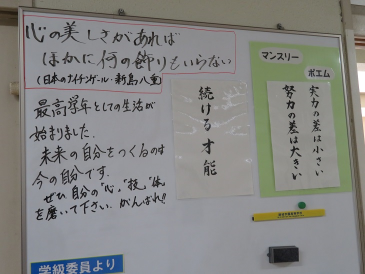 心の美しさがあれば
ほかに何の飾りもいらない
(日本のナイチンゲール・新島八重)
最高学年としての生活が
始まりました。
未来の自分をつくるのは
今の自分です。
ぜひ自分の"心","技","体"
を磨いて下さい。がんばれ!!
続ける才能
マンスリー
ポエム
実力の差は小さい
努力の差は大きい
学級委員より